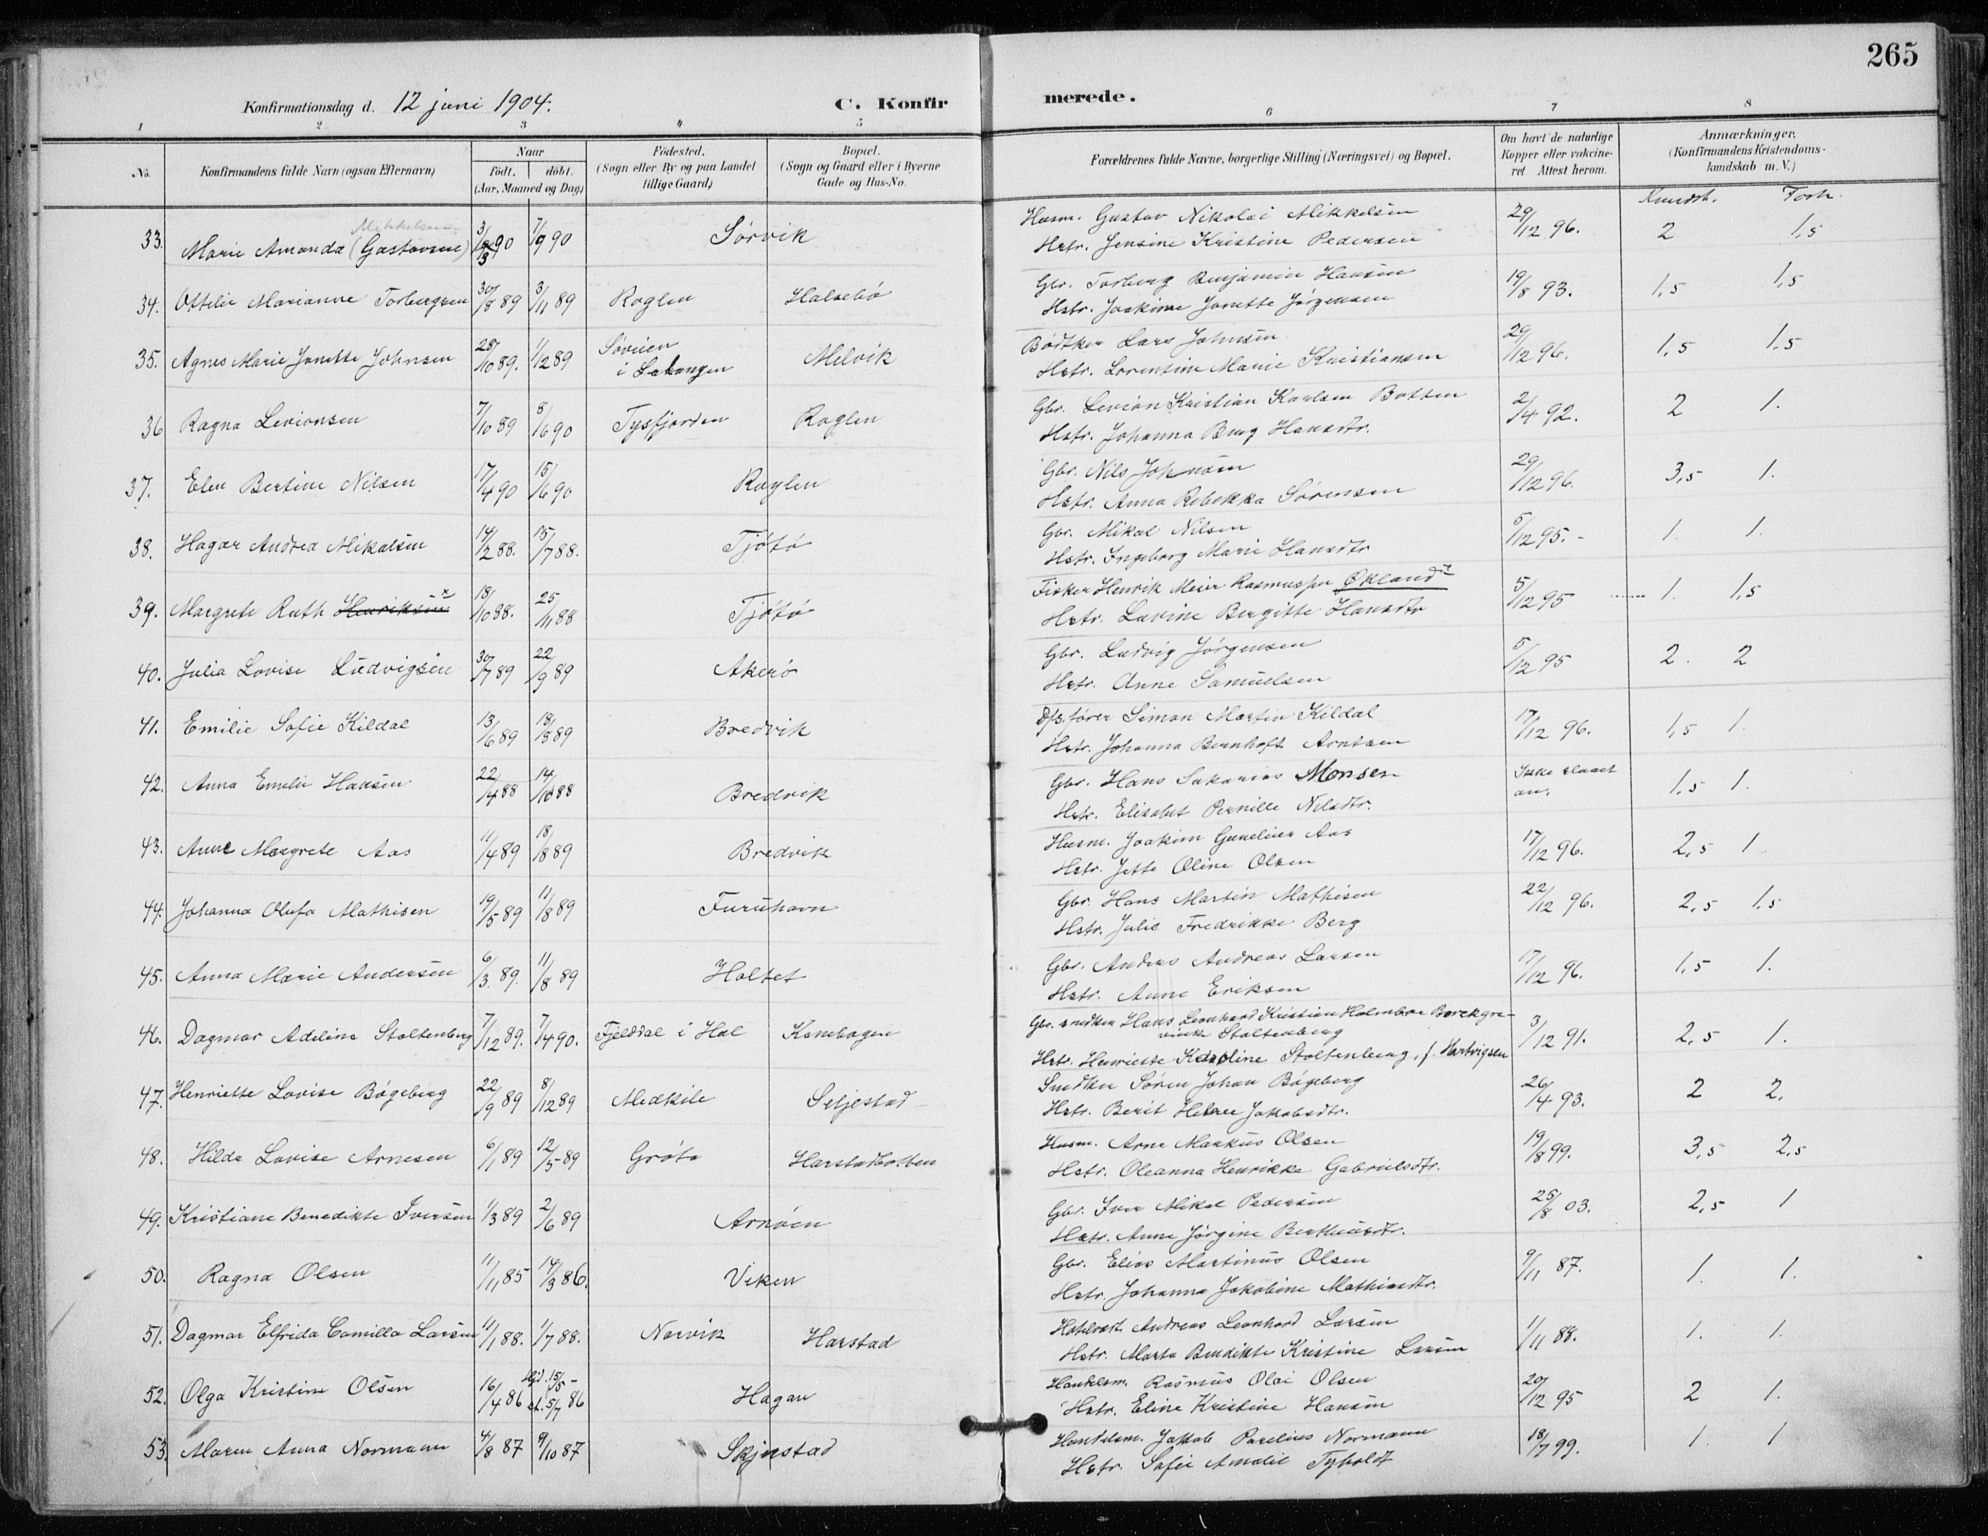 265
Konfirmationsdag d. 12 juni 1904. C. Konfirmerede.
1 2 3 4 5 6 7 8
No. Konfirmandens fulde Navn (ogsaa Efternavn) Naar født. døbt. (Aar, Maaned og Dag) Fødested. (Sogn eller By og paa Landet tillige Gaard) Bopæl. (Sogn og Gaard eller i Byerne Gade og Hus-No. Forældrenes fulde Navne, borgerlige Stilling (Næringsvei) og Bopæl. Om havt de naturlige Kopper eller vakcineret. Attest herom. Anmærkninger. (Konfirmandens Kristendomskundskab m. V.)
Kundsk. Forh.
Mikkelsen
33. Marie Amanda (Gustavsen) 7/9 90 Sørvik Husm. Gustav Nikolai Mikkelsen 29/12 96. 2 1,5
Hstr. Jensine Kristine Pedersen
34. Ottilie Marianne Torbergsen 30/8 89 3/11 89 Roglen Halsebø Gbr. Torberg Benjamin Hansen 19/8 93. 1,5 1,5
Hstr. Joakime Jonette Jørgensen
35. Agnes Marie Jonette Johnsen 28/10 89. 1/12 89 Søveien i Salangen Melvik Bødtker Lars Johnsen 29/12 96. 1,5 1,5
Hstr. Lorentine Marie Kristiansen
36 Ragna Levionsen 7/10 89 8/6 90 Tysfjorden Roglen Gbr. Levion Kristian Karlsen Botten 2/4 92. 2 1.
Hstr. Johanna Berg Hansdtr.
37. Elen Bertine Nilsen 17/4 90 15/6 90 Roglen Gbr. Nils Johnsen 29/12 96. 3,5 1.
Hstr. Anna Rebekka Sørensen
38. Hagar Andrea Mikalsen 14/2 88. 15/7 88. Tjøtø Gbr. Mikal Nilsen 5/12 95. - 1. 1.
Hstr. Ingeborg Marie Hansdtr
39. Margrete Ruth Henriksen x 18/10 88. 25/11 88 Tjøtø Fisker Henrik Meier Rasmussen Økland x 5/12 95 1. 1,5
Hstr. Lavine Bergitte Hansdtr
40. Julia Lovise Ludvigsen 30/7 89 22/9 89 Akerø Gbr. Ludvig Jørgensen 5/12 95 2. 2
Hstr. Anne Samuelsen
41. Emilie Sofie Kildal 13/6 89 18/8 89 Bredvik Dps.fører Simon Martin Kildal 17/12 96. 1,5 1.
Hstr. Johanna Bernhoft Arntsen
42. Anna Emelie Hansen 22/4 88 14/10 88 Bredvik Gbr. Hans Sakarias Monsen Ikke slaaet an. 1,5 1.
Hstr. Elisabet Pernille Nilsdtr.
43. Anne Margrete Aas 11/4 89 18/8 89 Bredvik Husm. Joakim Gunelius Aas 17/12 96. 2,5 1
Hstr. Jette Oline Olsen
44. Johanna Olufa Mathisen 19/5 89 11/8 89 Furuhavn Gbr. Hans Martin Mathisen 22/12 96. 2,5 1,5
Hstr. Julie Fredrikke Berg
45. Anna Marie Andersen 6/3. 89. 11/8 89 Holtet Gbr. Anders Andreas Larsen 17/12 96. 1,5 1.
Hstr. Anne Eriksen
46. Dagmar Adeline Stoltenberg 7/12 89. 7/4 90. Fjelddal i Hol Kanebogen Gbr. snedker Hans Leonhard Kristian Holmboe Borchgrevink Stoltenberg 3/12 91. 2,5 1.
Hstr. Henriette Karoline Stoltenberg, f. Hartvigsen
47. Henriette Lovise Bøgeberg 22/9 89 8/12 89 Medkile Seljestad Snedker Søren Johan Bøgeberg 26/4 93. 2 2.
Hstr. Berit Helene Jakobsdtr.
48. Hilda Lovise Arnesen 6/1 89 12/5 89 Grøtø Harstadbotten Husm. Arne Markus Olsen 19/8 99. 3,5 2,5
Hstr. Oleanna Henrikke Gabrielsdtr.
49. Kristiane Benedikte Iversen 1/3 89 2/6 89 Arnøen Gbr. Iver Mikal Pedersen 25/8 03. 2,5 1
Hstr. Anne Jørgine Bertheusdtr.
50. Ragna Olsen 11/11 85 14/3 86. Viken Gbr. Elias Martinus Olsen 9/11 87. 1. 1.
Hstr. Johanna Jakobine Mathiasdtr.
51. Dagmar Elfrida Camilla Larsen 11/1 88. 1/7 88. Narvik Harstad Hotelvært Andreas Leonhard Larsen 11/11 88. 1. 1.
Hstr. Marta Bendikte Kristine Larsen
52. Olga Kristine Olsen 16/4 86 hjd. 15/5 - st. 5/7 86 Hagan Handelsm. Rasmus Olai Olsen 20/12 95 2 1.
Hstr. Eline Kristine Hansen
53. Maren Anna Normann 4/8 87 9/10 87 Skjestad Handelsm. Jakob Parelius Normann 18/7 99. 1. 1
Hstr. Sofie Amalie Tyholdt